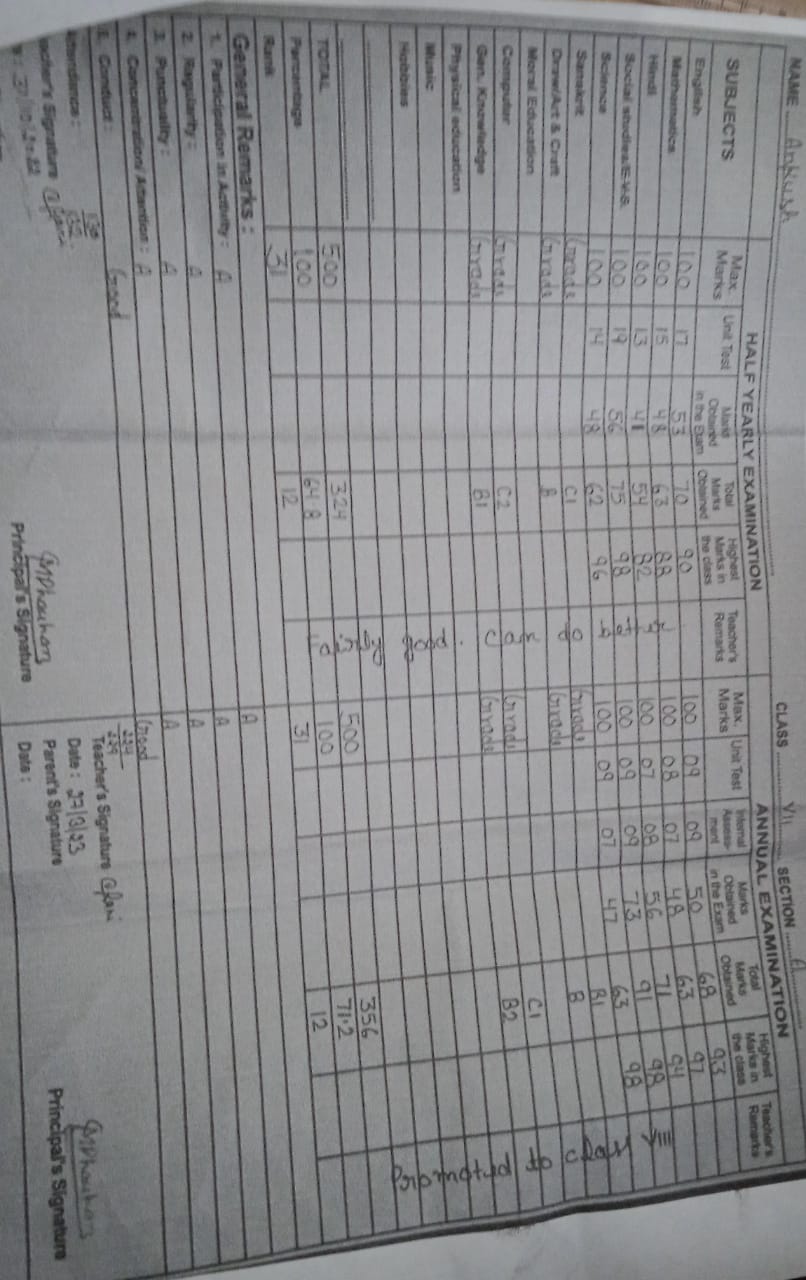 NAME Ankush CLASS VII SECTION A
SUBJECTS HALF YEARLY EXAMINATION ANNUAL EXAMINATION
Max. Marks Unit Test Marks Obtained in the Exam Total Marks Obtained Highest Marks in the class Teacher's Remarks Max. Marks Unit Test Internal Assess-ment Marks Obtained in the Exam Total Marks Obtained Highest Marks in the class Teacher's Remarks
English 100 17 53 70 90 100 09 09 50 68 93
Mathematics 100 15 48 63 88 100 08 07 48 63 97
Hindi 100 13 41 54 82 100 07 08 56 71 94
Social studies/E.V.S. 100 19 56 75 98 100 09 09 73 91 98
Science 100 14 48 62 96 100 09 07 47 63 98
Sanskrit Grade C1 Grade B1
Draw/Art & Craft Grade B Grade B
Moral Education
Computer Grade C2 Grade C1
Gen. Knowledge Grade B1 Grade B2
Physical education
Music
Hobbies
TOTAL 500 324 500 356
Percentage 100 64.8 100 71.2
Rank 31 12 31 12
Promoted to Class VIII
General Remarks :
1. Participation in Activity : A A
2. Regularity : A A
3. Punctuality : A A
4. Concentration/ Attention : A A
5. Conduct : Good Good
Attendance : 130/132 224/229
Teacher's Signature Teacher's Signature
Date : 27/3/23
Principal's Signature Parent's Signature Principal's Signature
Date :